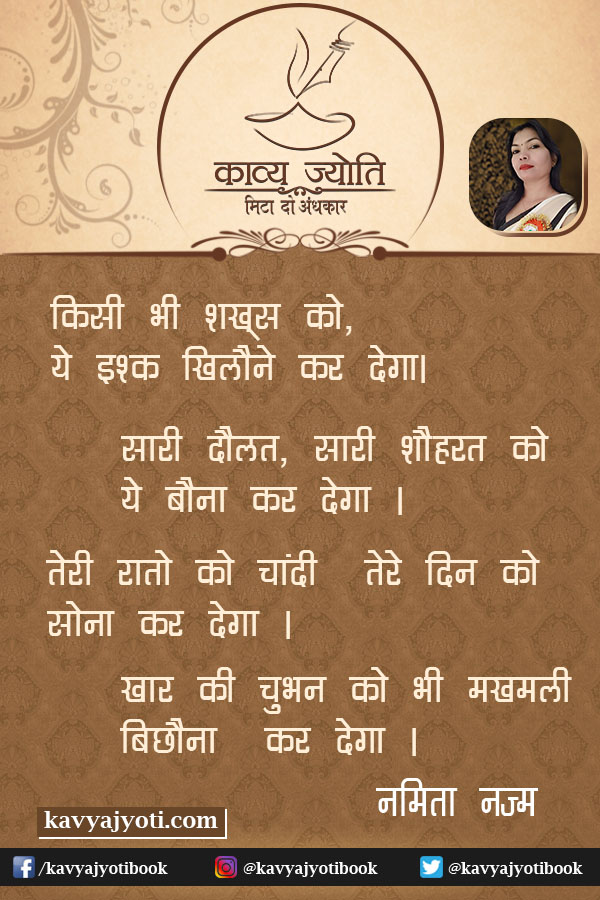 काव्य ज्योति
मिटा दो अंधकार
किसी भी शख़्स को,
ये इश्क खिलौने कर देगा।
सारी दौलत, सारी शौहरत को
ये बौना कर देगा ।
तेरी रातो को चांदी तेरे दिन को
सोना कर देगा ।
खार की चुभन को भी मखमली
बिछौना कर देगा ।
नमिता नज्म
kavyajyoti.com
/kavyajyotibook @kavyajyotibook @kavyajyotibook